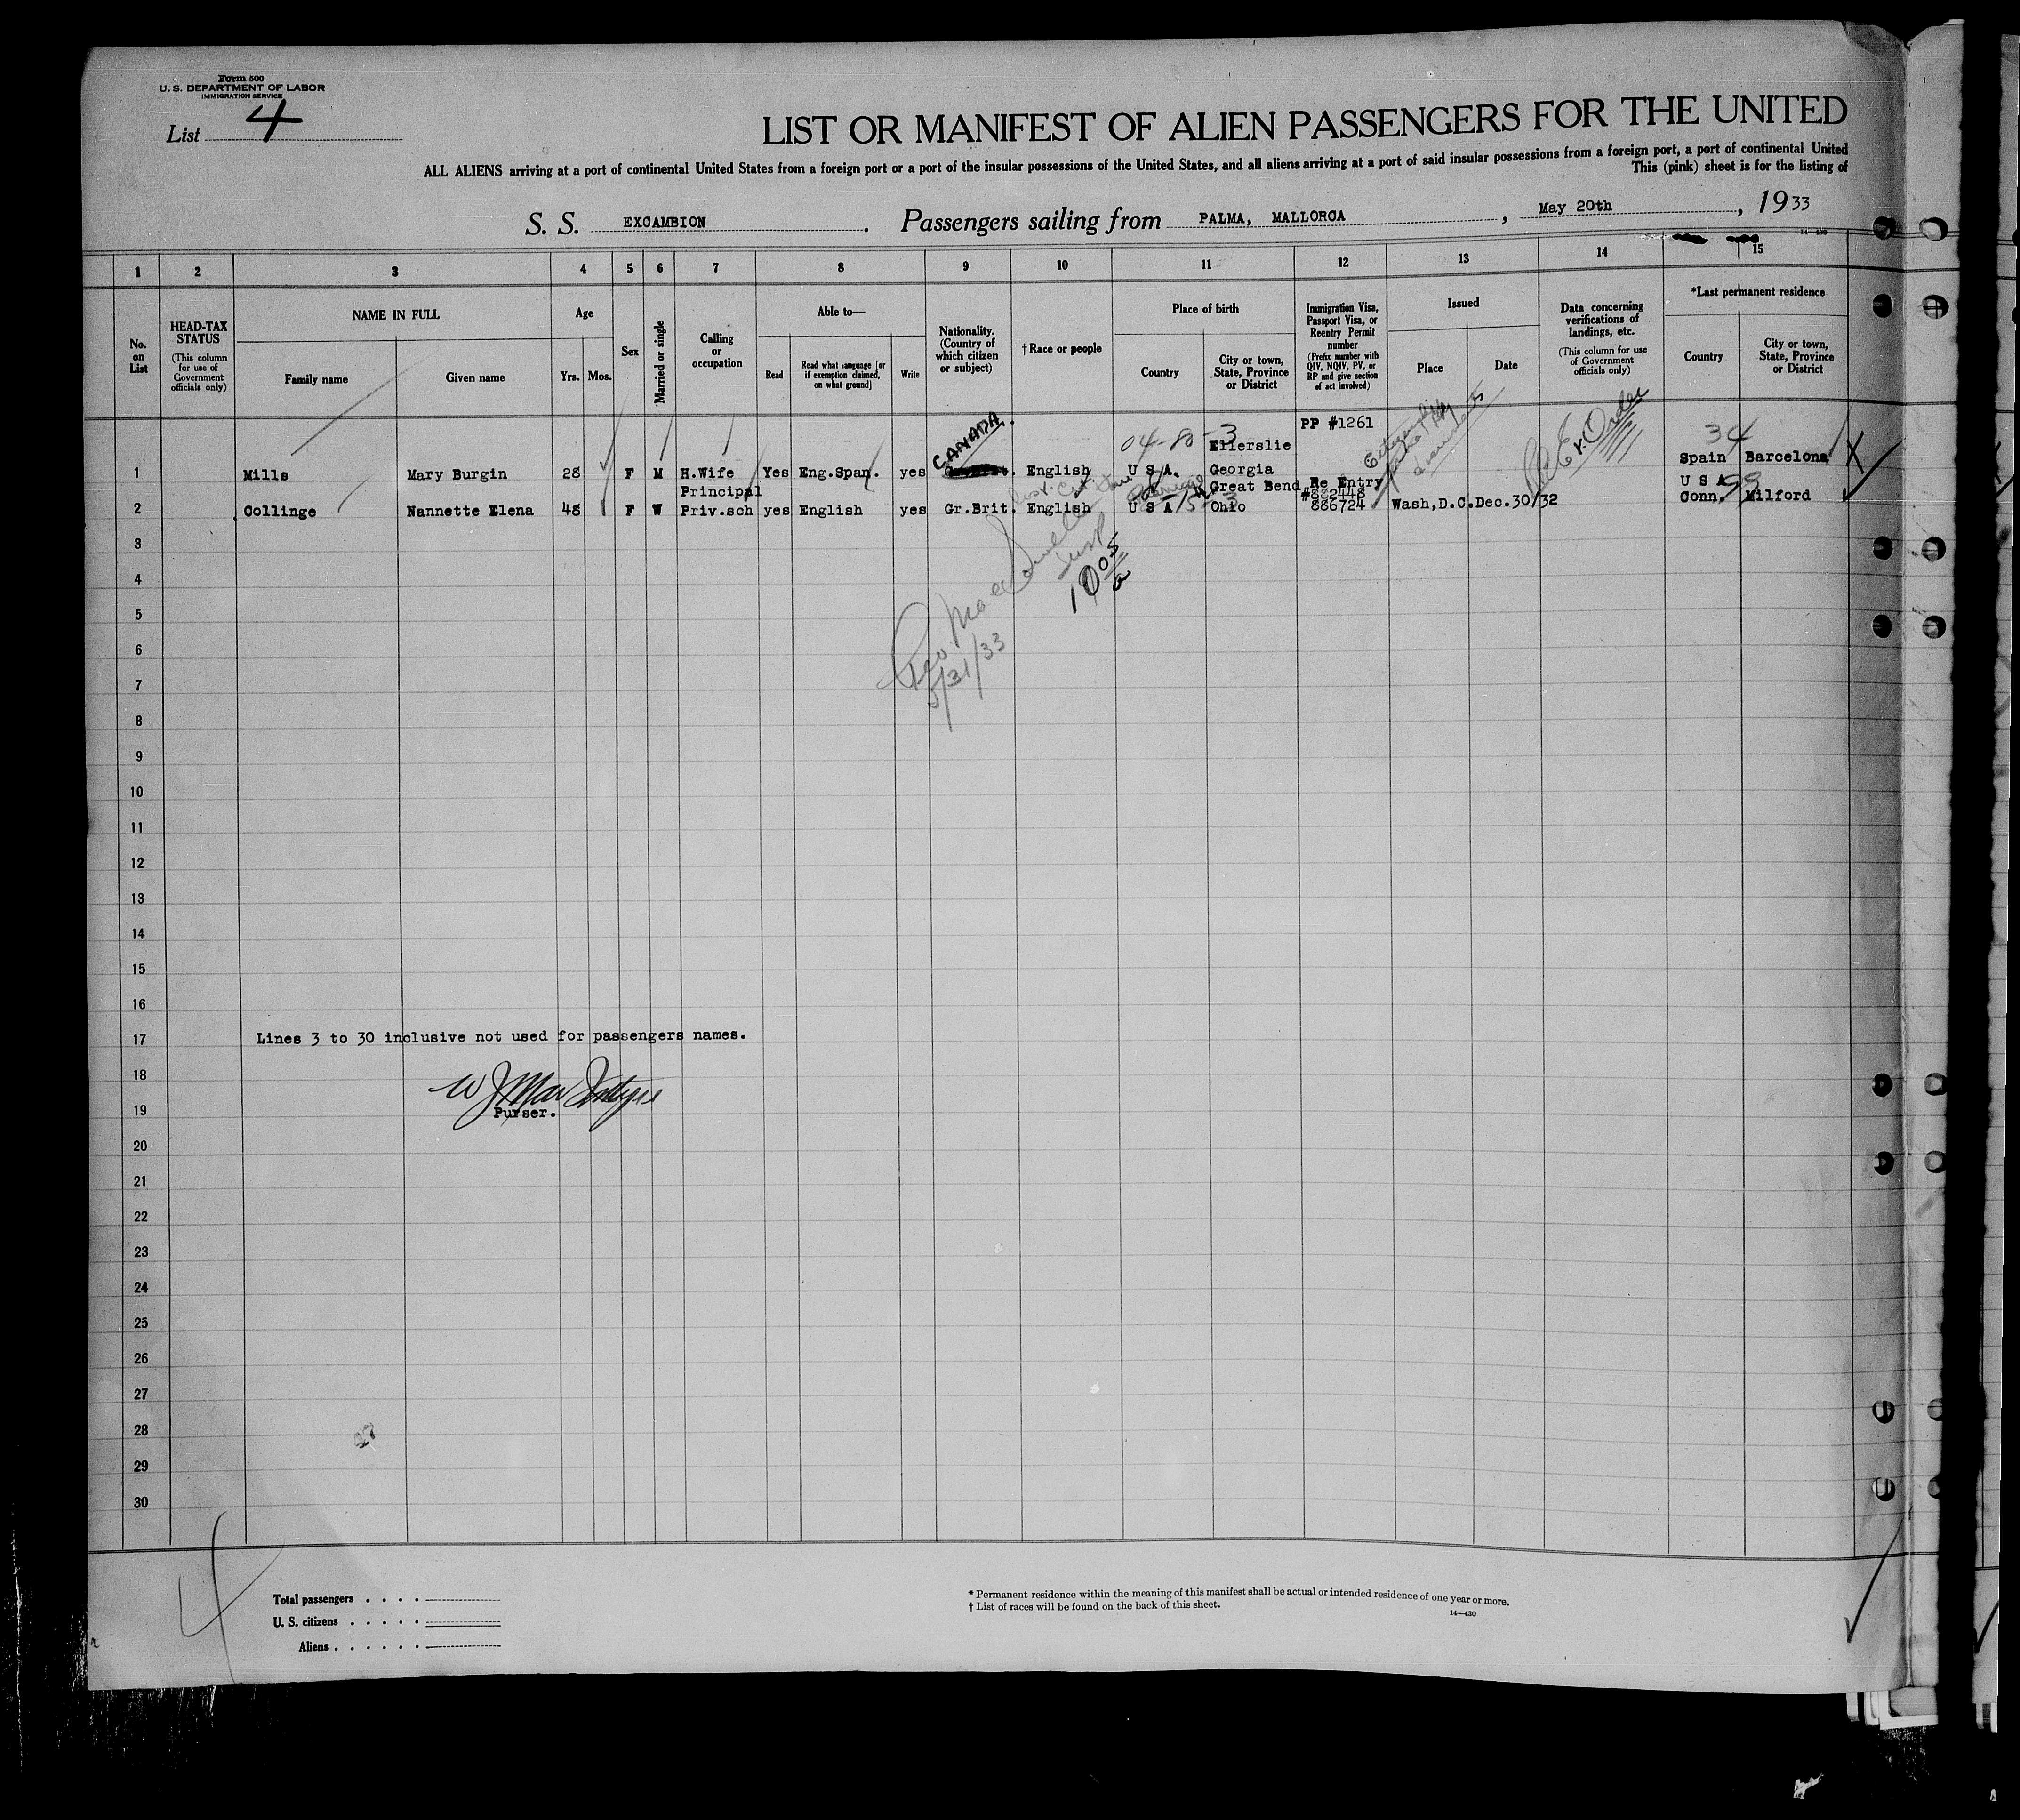 Form 500
U. S. DEPARTMENT OF LABOR
IMMIGRATION SERVICE
List 4
LIST OR MANIFEST OF ALIEN PASSENGERS FOR THE UNITED
ALL ALIENS arriving at a port of continental United States from a foreign port or a port of the insular possessions of the United States, and all aliens arriving at a port of said insular possessions from a foreign port, a port of continental United
This (pink) sheet is for the listing of
S. S. EXCAMBION. Passengers sailing from PALMA, MALLORCA, May 20th, 1933
14—430
1 2 3 4 5 6 7 8 9 10 11 12 13 14 15
No. on List
HEAD-TAX STATUS
(This column for use of Government officials only)
NAME IN FULL
Family name
Given name
Age
Yrs. Mos.
Sex
Married or single
Calling or occupation
Able to—
Read
Read what language [or if exemption claimed, on what ground]
Write
Nationality. (Country of which citizen or subject)
†Race or people
Place of birth
Country
City or town, State, Province or District
Immigration Visa, Passport Visa, or Reentry Permit number
(Prefix number with QIV, NQIV, PV, or RP and give section of act involved)
Issued
Place
Date
Data concerning verifications of landings, etc.
(This column for use of Government officials only)
*Last permanent residence
Country
City or town, State, Province or District
CANADA.
04-8-3
PP #1261
Ex. Order
34
Ellerslie
1 Mills Mary Burgin 28 F M H.Wife Yes Eng.Span. yes English U S A. Georgia Spain Barcelona X
Principal Great Bend Re Entry U S A 99
#882448
2 Collinge Nannette Elena 48 F W Priv.sch yes English yes Gr.Brit. English U S A Ohio 886724 Wash,D.C.Dec.30/32 Conn, Milford
3
4
5
6
5/31/33
7
8
9
10
11
12
13
14
15
16
17 Lines 3 to 30 inclusive not used for passengers names.
18
19 Purser.
20
21
22
23
24
25
26
27
28
29
30
4
Total passengers . . . .
U. S. citizens . . . . .
Aliens . . . . . .
* Permanent residence within the meaning of this manifest shall be actual or intended residence of one year or more.
† List of races will be found on the back of this sheet.
14—430